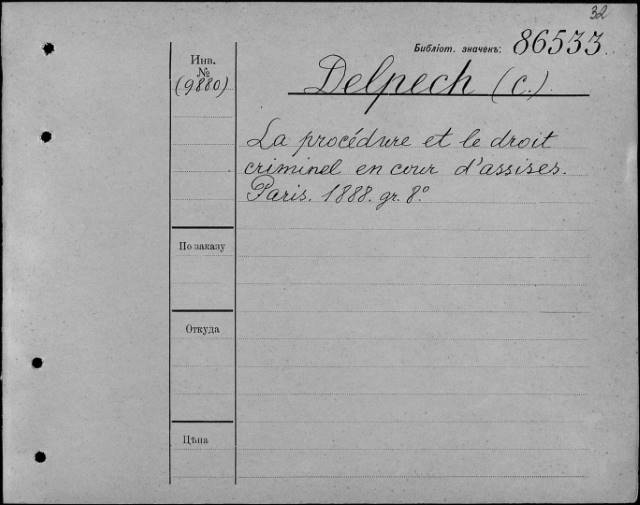 32
Библіот. значекъ: 86533
Инв.
№
(9880)
Delpech (C.)
La procédure et le droit
criminel en cour d'assises.
Paris. 1888. gr. 8°
По заказу
Откуда
Цѣна